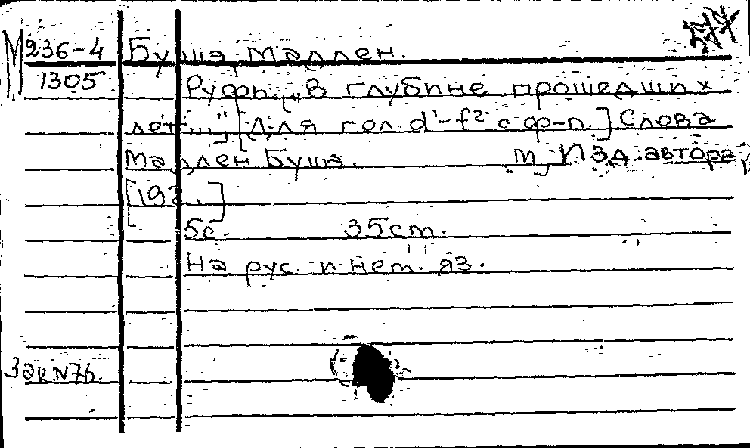 М 236-4 Буш, Мадлен.
1305 Руфь. "В глубине прошедших
лет...", [Для гол. d'-f² с ф-п.] Слова
Мадлен Буш. М, Изд. автора,
[192.]
5с. 35cm.
На рус. и нем. яз.
Зак N76.